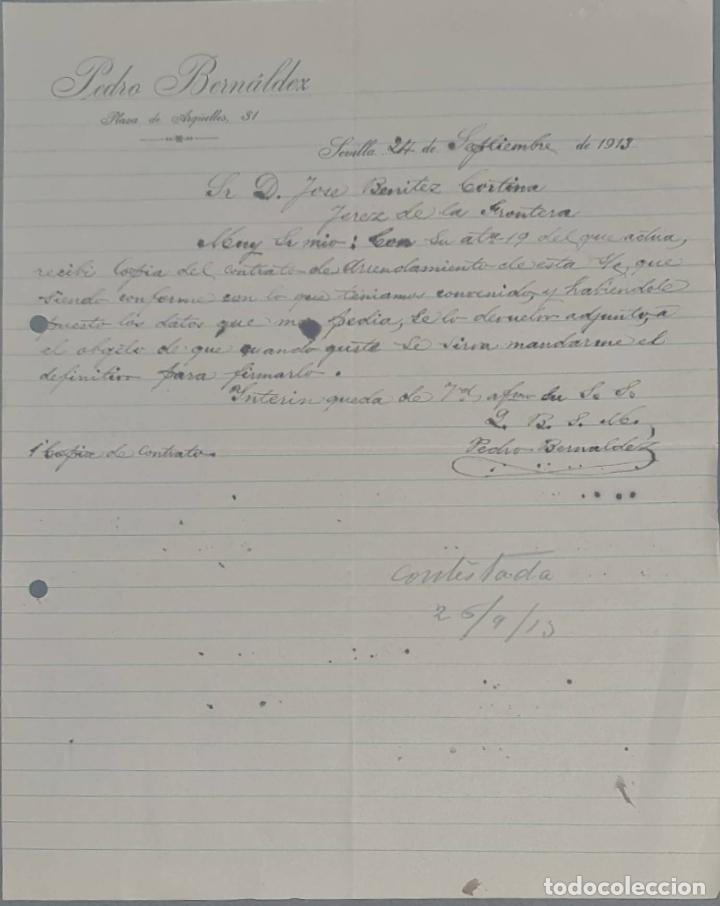 Pedro Bernáldez
Plaza de Argüelles, 31
Sevilla 24 de Septiembre de 1913
Sr D. Jose Benitez Cortina
Jerez de la Frontera
Muy Sr mio: Con su atta 19 del que actua,
recibi Copia del contrato de Arrendamiento de esta que
siendo conforme con lo que teniamos convenido, y habiendole
puesto los datos que me pedia, se lo devuelvo adjunto, a
el objeto de que quando guste se sirva mandarme el
definitivo para firmarlo.
Interin queda de Vd afmo su S. S.
Q. B. S. M.
Pedro Bernaldez
1 Copia de contrato.
contestada
26/9/13
todocoleccion
todocoleccion.net